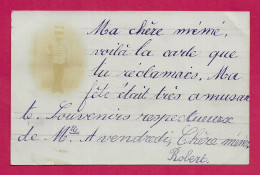 Ma chère mémé,
voilà la carte que
tu réclamais. Ma
fête était très amusan
te. Souvenirs respectueux
de Mlle A vendredi, Chère mémé
Robert.